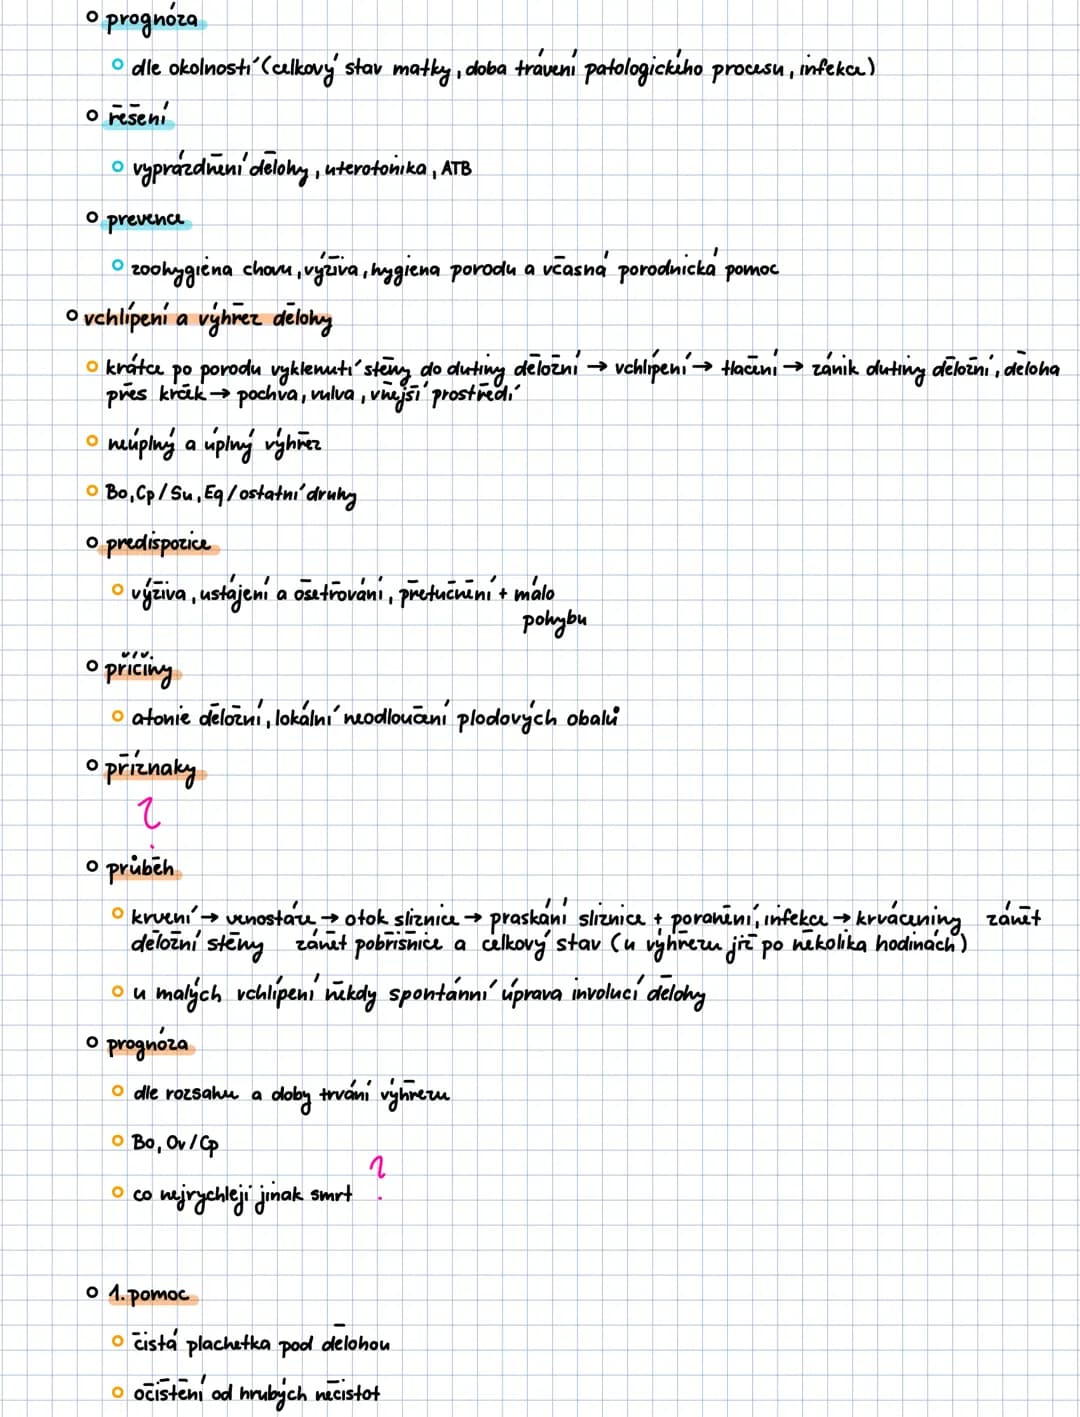 prognóza
dle okolností (celkový stav matky, doba trávení patologického procesu, infekce)
řešení
vyprázdnění dělohy, uterotonika, ATB
prevence
zoohygiena chovu, výživa, hygiena porodu a včasná porodnická pomoc
vchlípení a výhřez dělohy
krátce po porodu vyklenutí stěny do dutiny děložní → vchlípení → tlačení → zánik dutiny děložní, děloha
přes krček → pochva, vulva, vnější prostředí
neúplný a úplný výhřez
Bo, Cp / Su, Eq / ostatní druhy
predispozice
výživa, ustájení a ošetřování, přetučnění + málo
pohybu
příčiny
atonie děložní, lokální neodloučání plodových obalů
příznaky
?
průběh
krvení → venostáze → otok sliznice → praskání sliznice + poranění, infekce → krváceniny zánět
děložní stěny zánět pobřišnice a celkový stav (u výhřezu již po několika hodinách)
u malých vchlípení někdy spontánní úprava involucí dělohy
prognóza
dle rozsahu a doby trvání výhřezu
Bo, Ov / Cp
co nejrychleji jinak smrt ?
1. pomoc
čistá plachetka pod dělohou
očištění od hrubých nečistot